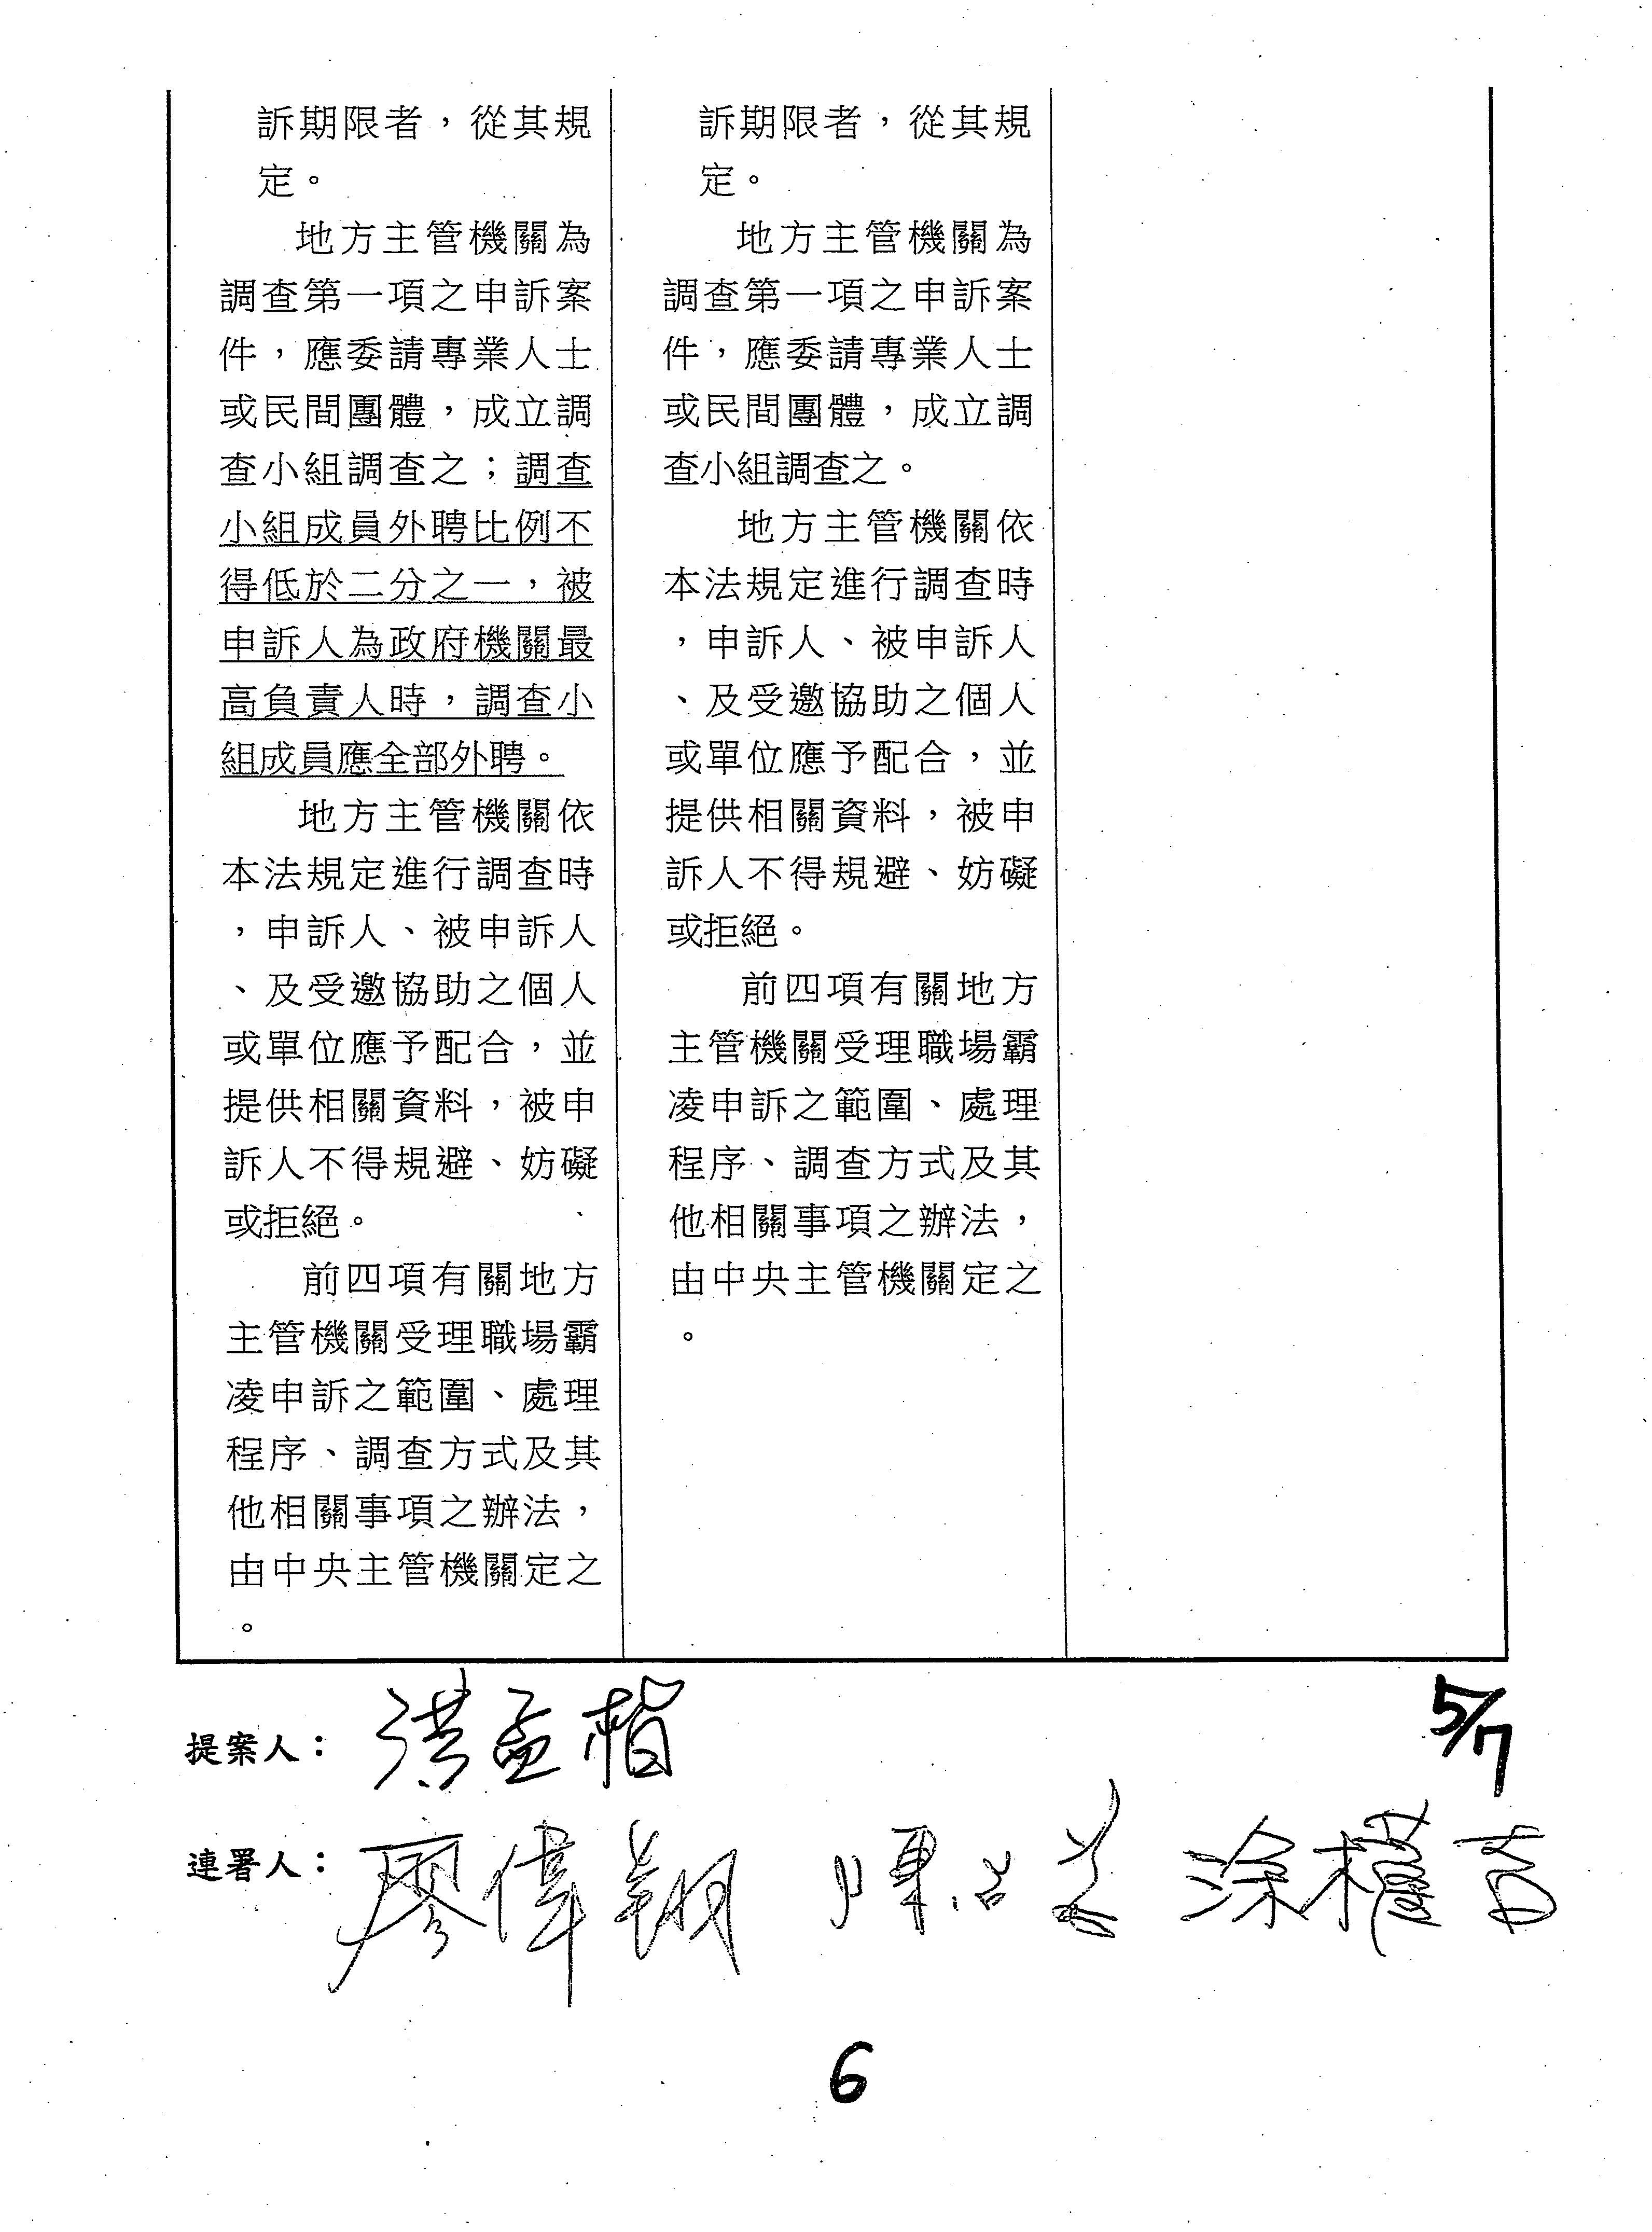 訴期限者，從其規
定。
地方主管機關為
調查第一項之申訴案
件，應委請專業人士
或民間團體，成立調
查小組調查之；調查
小組成員外聘比例不
得低於二分之一，被
申訴人為政府機關最
高負責人時，調查小
組成員應全部外聘。
地方主管機關依
本法規定進行調查時
，申訴人、被申訴人
、及受邀協助之個人
或單位應予配合，並
提供相關資料，被申
訴人不得規避、妨礙
或拒絕。
前四項有關地方
主管機關受理職場霸
凌申訴之範圍、處理
程序、調查方式及其
他相關事項之辦法，
由中央主管機關定之
。
訴期限者，從其規
定。
地方主管機關為
調查第一項之申訴案
件，應委請專業人士
或民間團體，成立調
查小組調查之。
地方主管機關依
本法規定進行調查時
，申訴人、被申訴人
、及受邀協助之個人
或單位應予配合，並
提供相關資料，被申
訴人不得規避、妨礙
或拒絕。
前四項有關地方
主管機關受理職場霸
凌申訴之範圍、處理
程序、調查方式及其
他相關事項之辦法，
由中央主管機關定之
。
提案人：洪孟楷
5/7
連署人：廖偉翔 陳菁徽 涂權吉
6